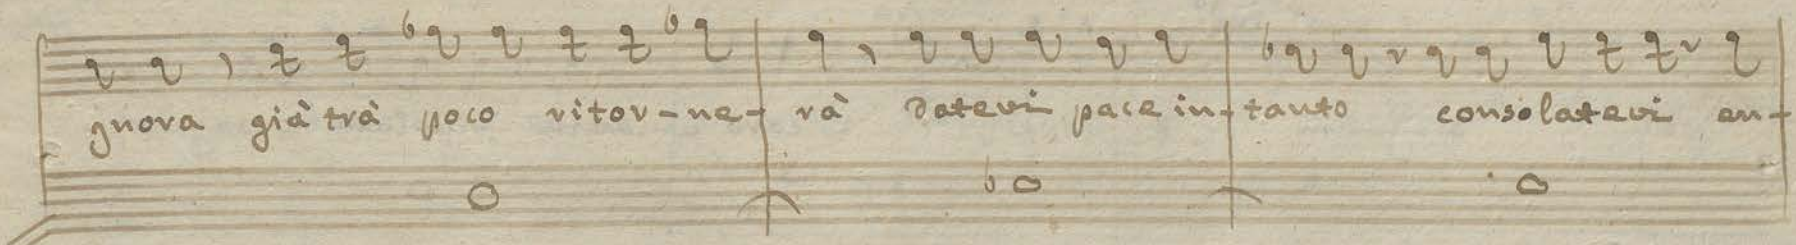 gnora già trà poco ritor-ne-rà datevi pace in-tanto consolatevi en-